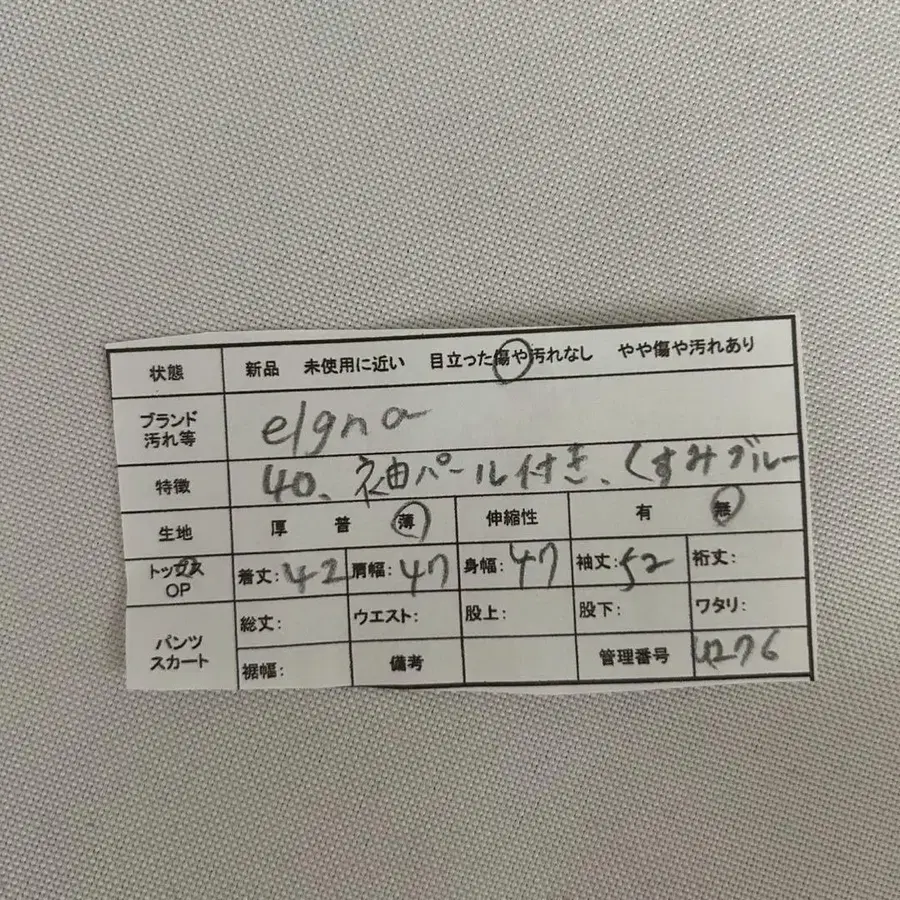 状態 新品 未使用に近い 目立った傷や汚れなし やや傷や汚れあり
ブランド 汚れ等 elgna
特徴 40、袖パール付き、くすみブルー
生地 厚 普 薄 伸縮性 有 無
トップス OP 着丈:42 肩幅:47 身幅:47 袖丈:52 裄丈:
パンツ スカート 総丈: ウエスト: 股上: 股下: ワタリ:
裾幅: 備考 管理番号 4276